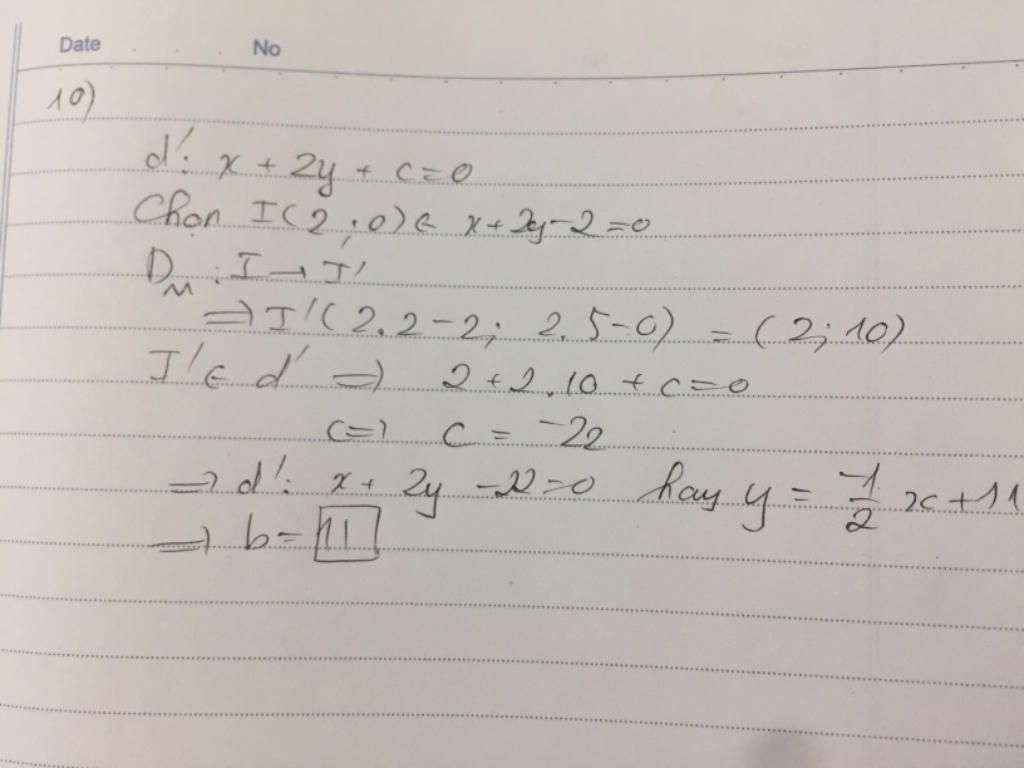 Date No
10)
d': x + 2y + c = 0
Chọn I(2;0) ∈ x + 2y - 2 = 0
D_M : I → I'
⇒ I'(2.2-2; 2.5-0) = (2; 10)
I' ∈ d' ⇒ 2 + 2.10 + c = 0
(=) c = -22
⇒ d': x + 2y - 22 = 0 hay y = -1/2 x + 11
⇒ b = 11